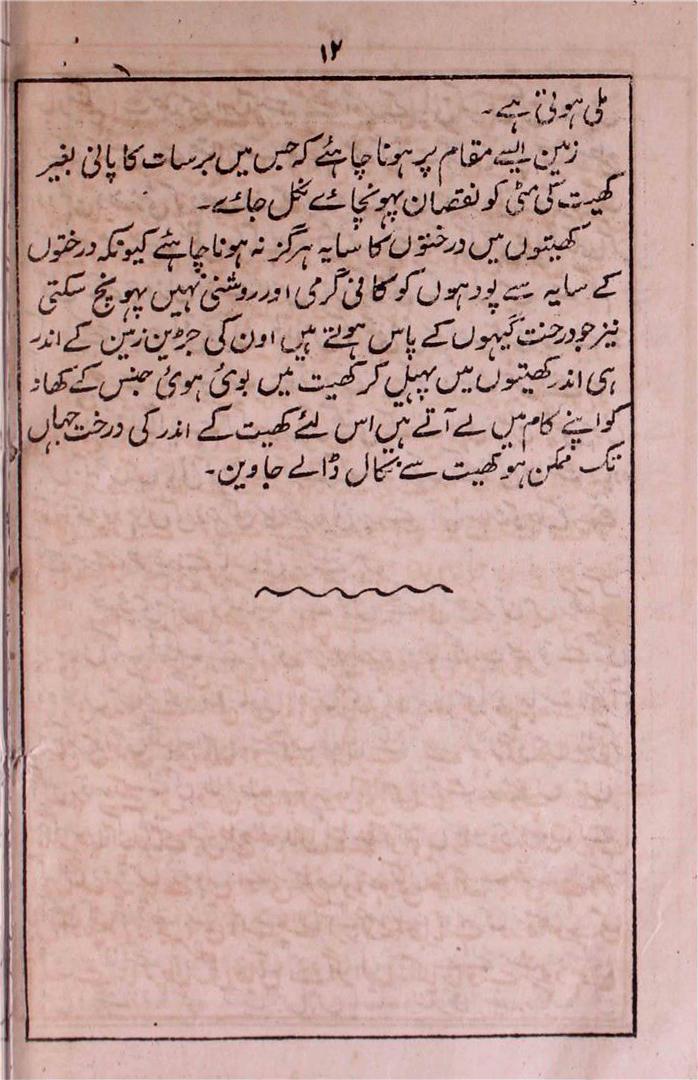 ۱۲
ملی ہوتی ہے۔
زمین ایسے مقام پر ہونا چاہئے کہ جس میں برسات کا پانی بغیر
کھیت کی مٹی کو نقصان پہونچائے نکل جائے۔
کھیتوں میں درختوں کا سایہ ہرگز نہ ہونا چاہئے کیونکہ درختوں
کے سایہ سے پودہوں کو کافی گرمی اور روشنی نہیں پہونچ سکتی
نیز جو درخت گیہوں کے پاس ہوتے ہیں اون کی جڑین زمین کے اندر
ہی اندر کھیتوں میں پہیل کر کھیت میں بوئی ہوئی جنس کے کھانہ
کو اپنے کام میں لے آتے ہیں اس لئے کھیت کے اندر کی درخت جہاں
تک ممکن ہو کھیت سے نکال ڈالے جاوین۔